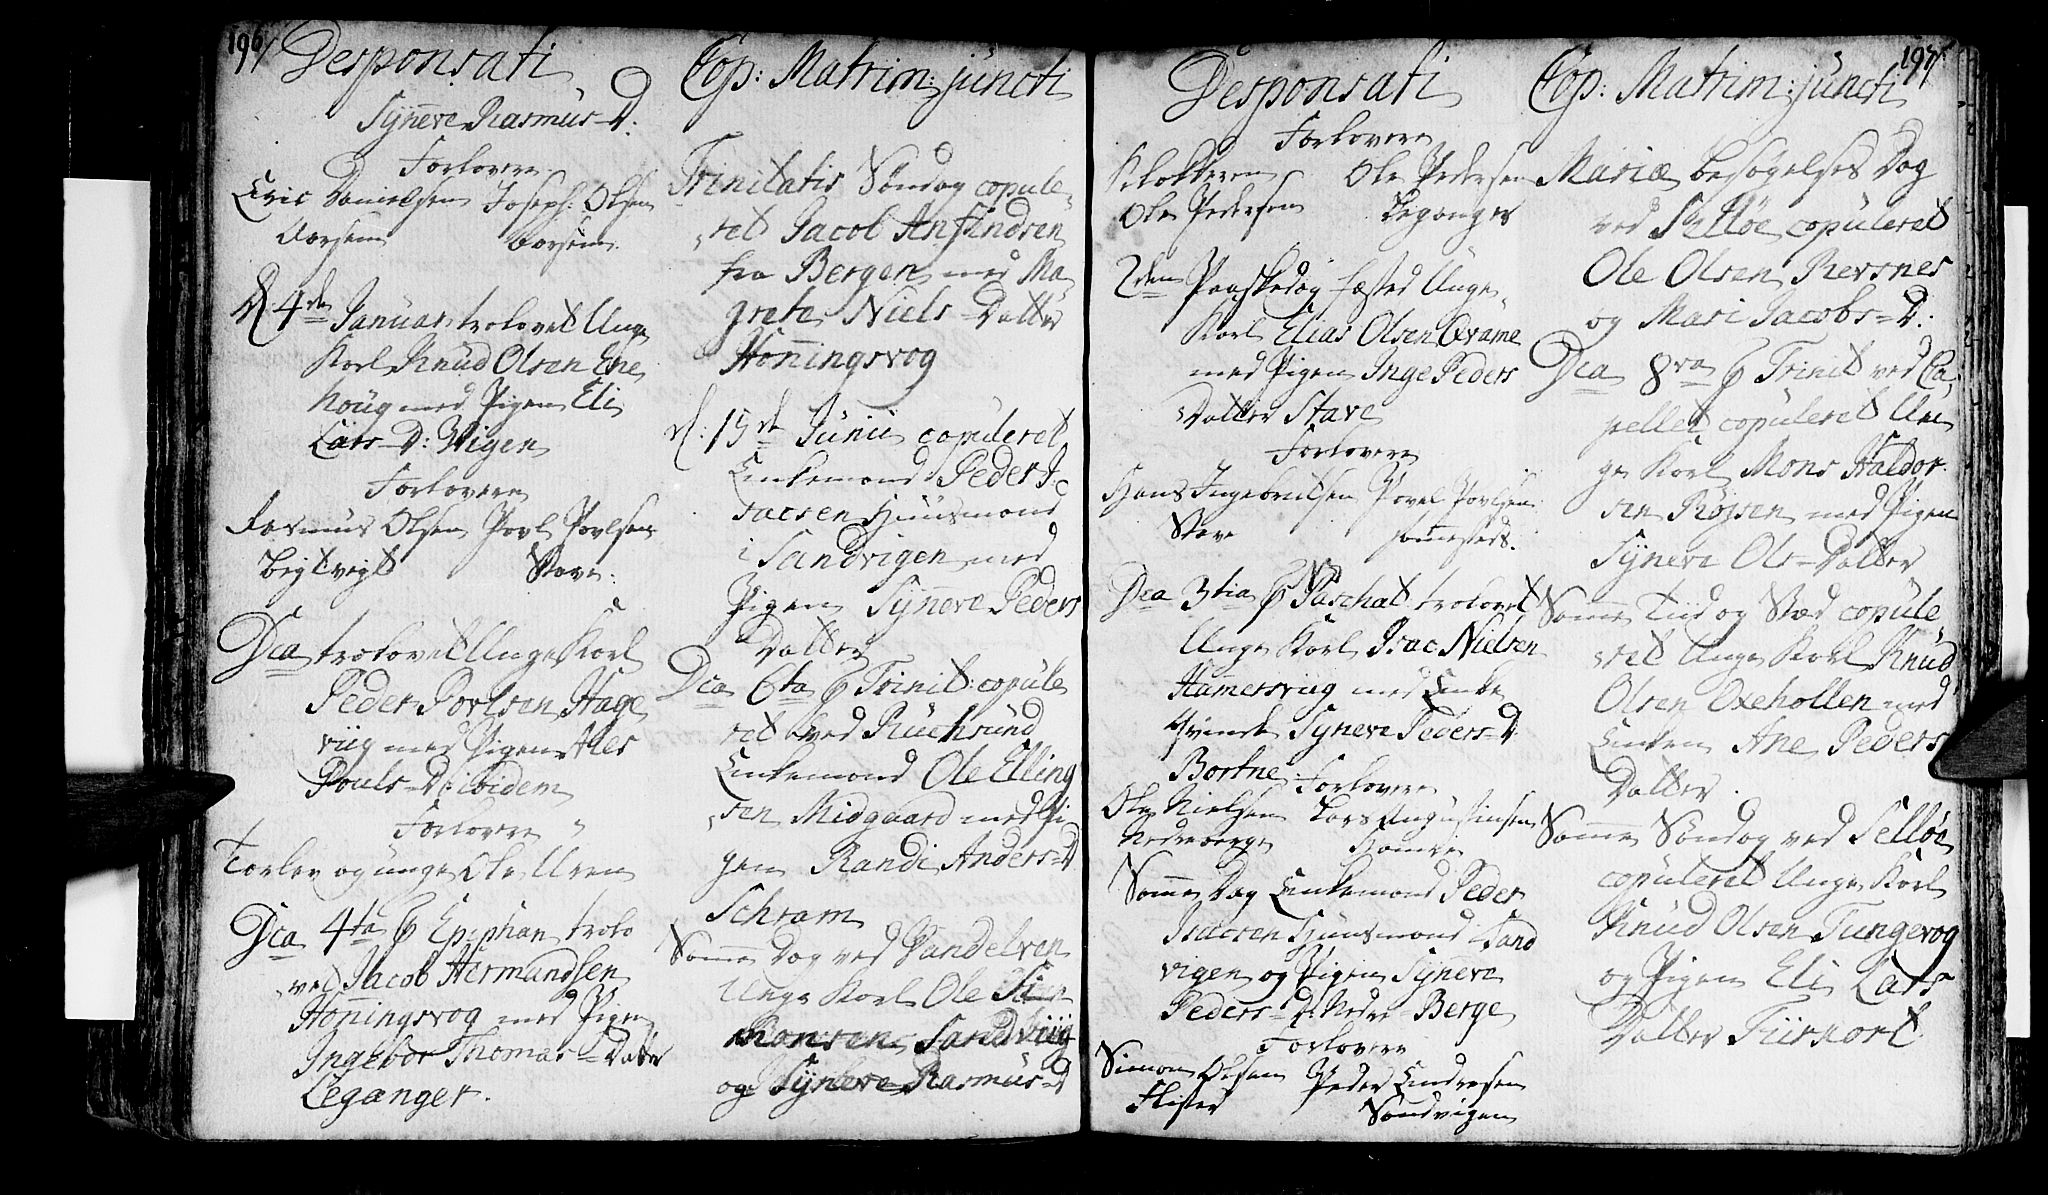 196
Desponsati
Synneve Rasmus-D:
Forlovere
Eric Danielsen Joseph Olsen
d 4de Januar trolovet Unge
Karl Knud Olsen Ene
houg med Pigen Eli
Lars-D: Wigen
Forlovere
Rasmus Olsen Povl Povlsen
Stave:
Dca trolovet Unge Karl
Peder Povlsen Hage
viig med Pigen Ales
Pouls-D: ibidem
Forlovere
Torlev og unge Ole Uren
Dca 4ta p Epiphan trolo
vet Jacob Hermandsen
Honningsvog med Pigen
Ingebor Thomas-Datter
Leganger.
Cop: Matrim: juncti
Trinitatis Søndag copule
ret Jacob Anfindsen
fra Bergen med Ma
grete Niels-Datter
Honningsvog
d: 15de Junii copuleret
Enkemand Peder I
sacsen Huusmand
i Sandvigen med
Pigen Synneve Peders
Datter
Dca 6ta p Trinit: copule
ret ved Ruchsund
Enkemand Ole Elling
sen Midgaard med Pi
gen Randi Anders-D
Schram
Samme Dag ved Vandelven
Unge Karl Ole Si
monsen Sandviig
og Synneve Rasmus-D
197
Desponsati
Forlovere
Klokkeren Ole Pedersen
Ole Pedersen Leganger
2den Paaskedag fæsted Unge
Karl Elias Olsen Qvame
med Pigen Inge Peders
Datter Stave
Forlovere
Hans Ingebrittsen Povel Povlsen
Stave
Dca 3tia p Paschat trolovet
Unge Karl Isac Nielsen
Hammersviig med Enke
qvinde Synneve Peders-D
Bortne Forlovere
Ole Nielsen Lars Augustinsen
Nedreberge
Samme Dag Enkemand Peder
Isacsen Huusmand i Sand
vigen og Pigen Synneve
Peders-D: Nedre Berge
Forlovere
Simon Olsen Peder Endresen
Flister Sandvigen
Cop: Matrim: juncti
Mariæ besøgelses Dag
ved Selløe copuleret
Ole Olsen Revsnes
og Mari Jacobs-D:
Dca 8va p Trinit ved Ca
pellet copuleret Un
ge Karl Mons Haldor
sen Røjsen med Pigen
Synneve Ols-Datter
Samme Tiid og Stæd copule
ret Unge Karl Knud
Olsen Oxehollen med
Enken Ane Peders
Datter.
Samme Søndag ved Selløe
copuleret Unge Karl
Knud Olsen Tungevog
og Pigen Eli Lars
Datter Tiirkort